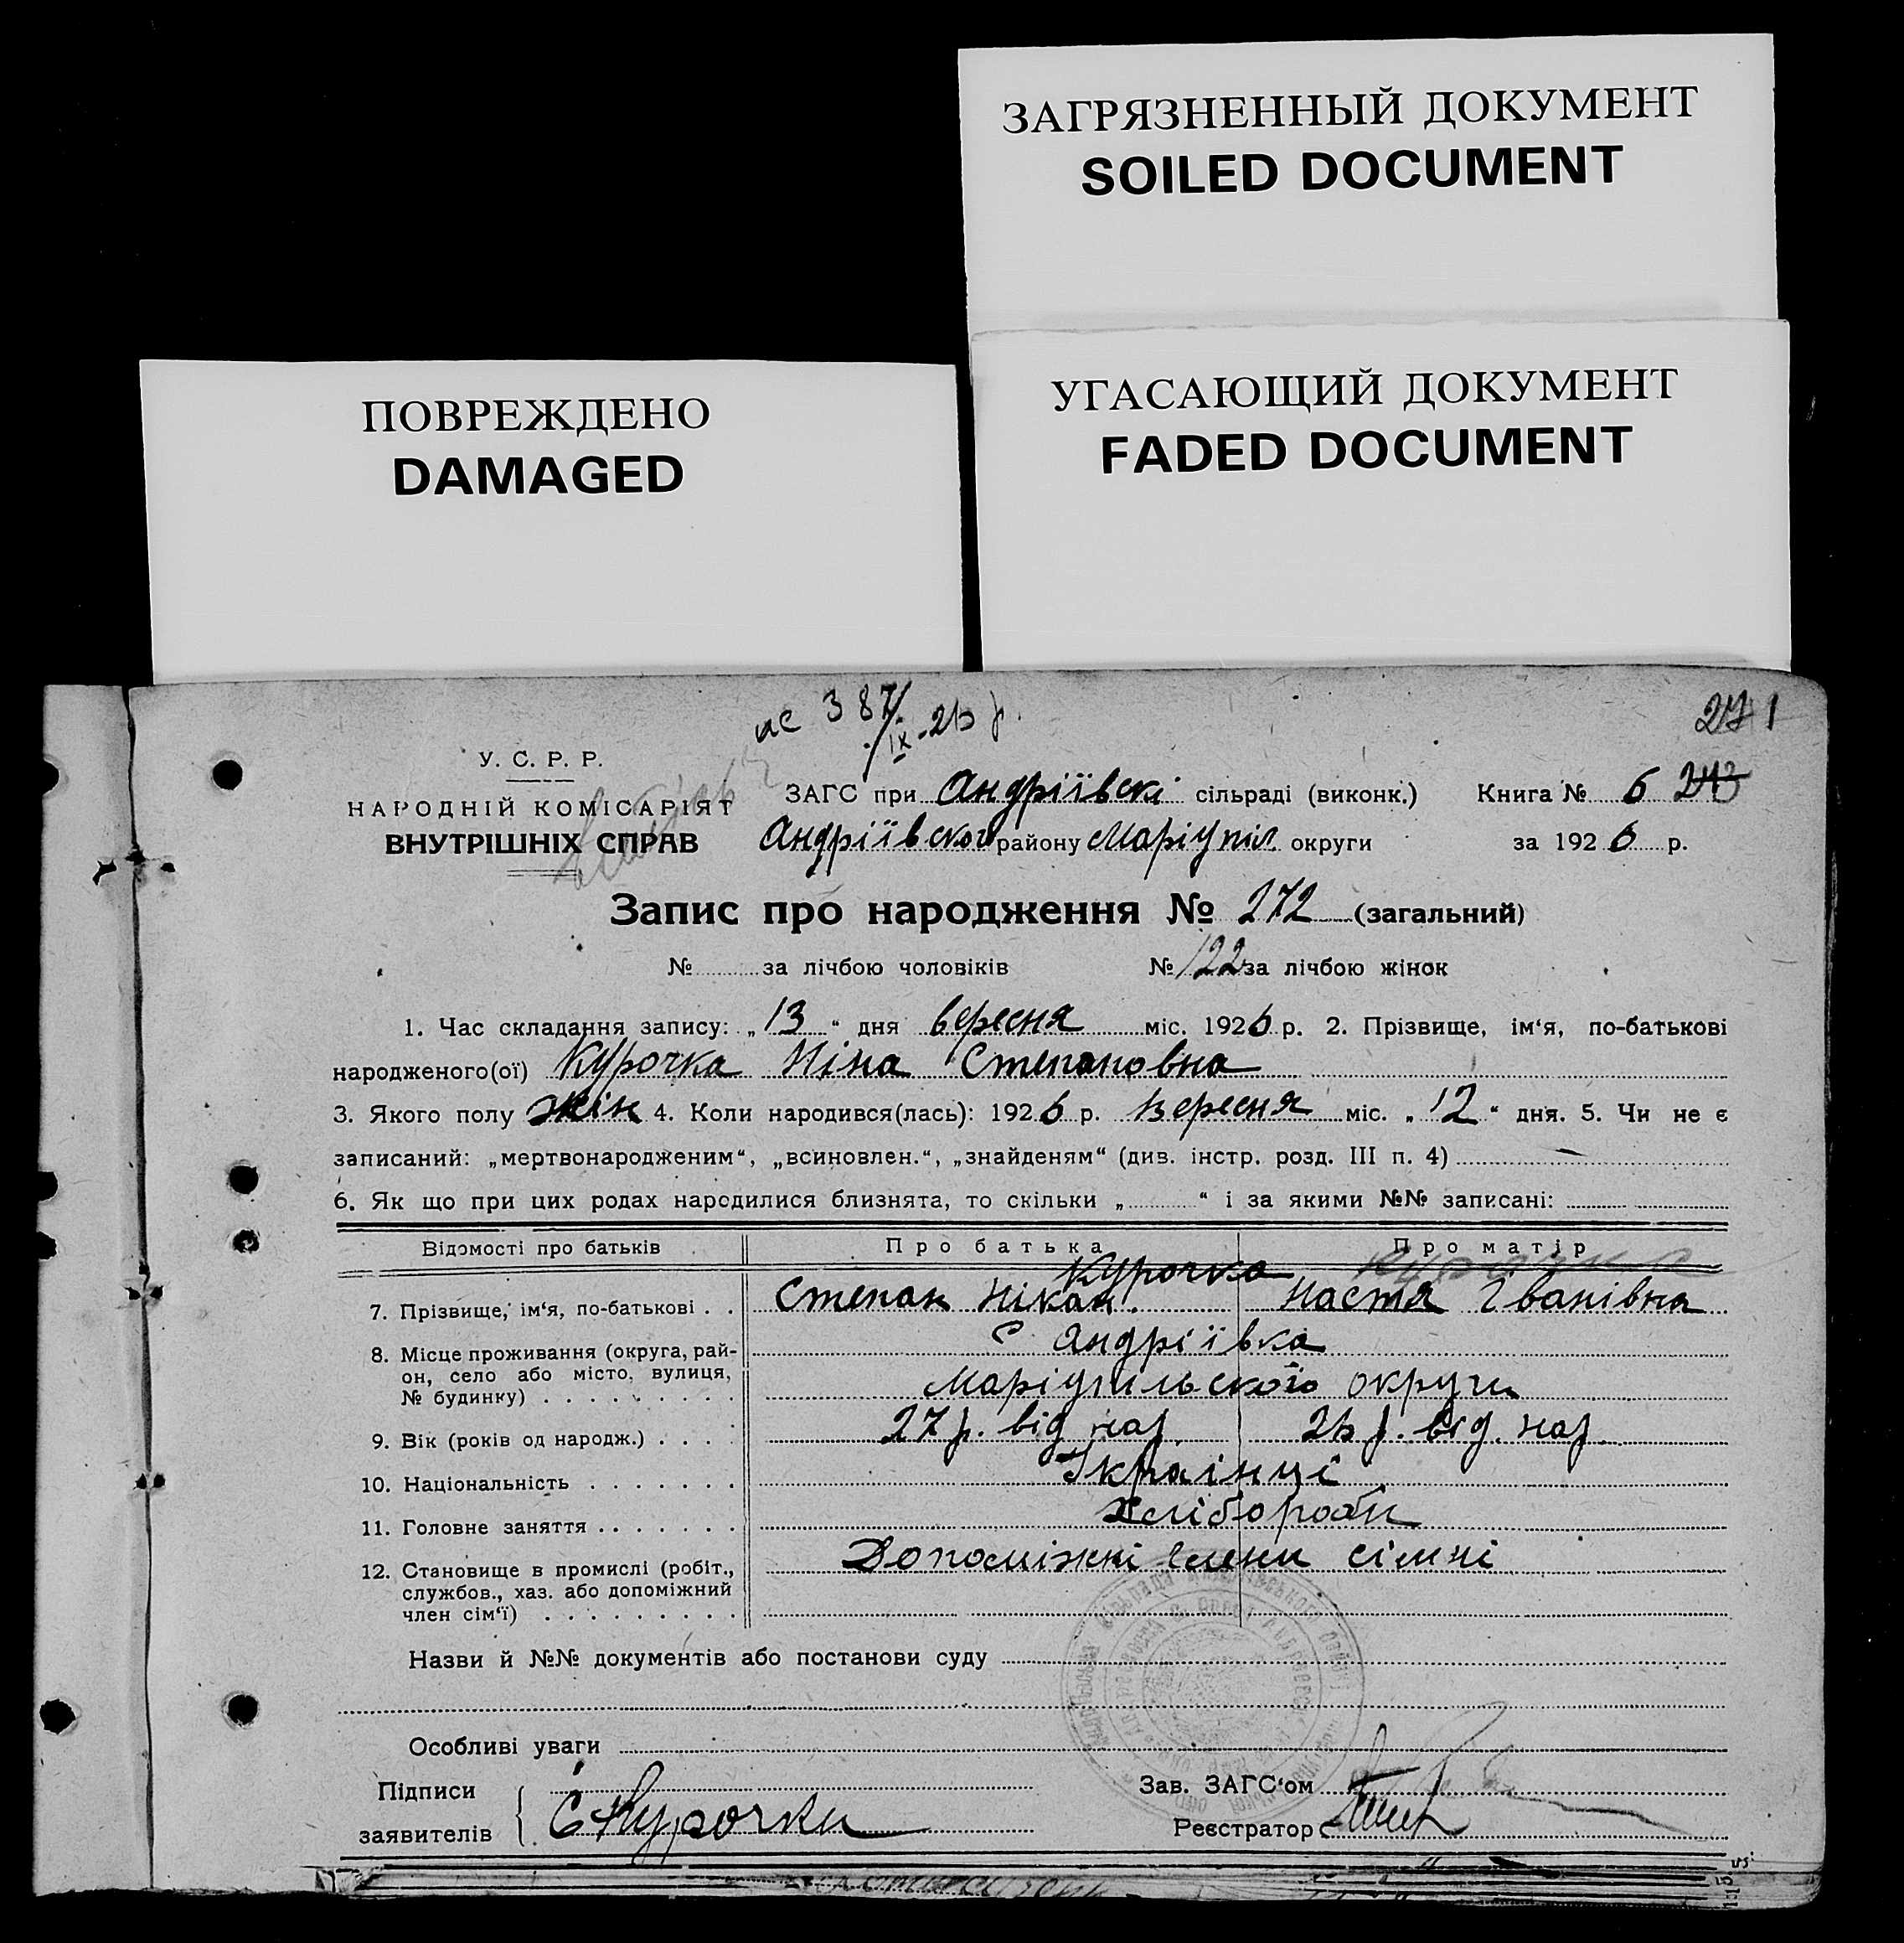 ЗАГРЯЗНЕННЫЙ ДОКУМЕНТ
SOILED DOCUMENT
УГАСАЮЩИЙ ДОКУМЕНТ
FADED DOCUMENT
ПОВРЕЖДЕНО
DAMAGED
271
У. С. Р. Р.
НАРОДНІЙ КОМІСАРІЯТ
ВНУТРІШНІХ СПРАВ
ЗАГС при Андріївскі сільраді (виконк.) Книга № 6 243
Андріївског району Маріупіл. округи за 1926 р.
Запис про народження № 272 (загальний)
№ за лічбою чоловіків № 122 за лічбою жінок
1. Час складання запису: „13“ дня вересня міс. 1926 р. 2. Прізвище, ім‘я, по-батькові
народженого(ої) Курочка Ніна Степановна
3. Якого полу жін 4. Коли народився(лась): 1926 р. вересня міс. „12“ дня. 5. Чи не є
записаний: „мертвонародженим“, „всиновлен.“, „знайденям“ (див. інстр. розд. III п. 4)
6. Як що при цих родах народилися близнята, то скільки „ “ і за якими №№ записані:
Відомості про батьків Про батька Про матір
Курочка Курочка
7. Прізвище, ім‘я, по-батькові . . Степан Нікан. Настя Іванівна
8. Місце проживання (округа, рай- с Андріївка
он, село або місто, вулиця,
№ будинку) . . . . . . . . Маріупільського округи
9. Вік (років од народж.) . . . . 27 р. від нар. 26 р. від. нар.
10. Національність . . . . . . . Українці
11. Головне заняття . . . . . . . Хлібороби
12. Становище в промислі (робіт., Допоміжні члени сімні
службов., хаз. або допоміжний
член сім‘ї) . . . . . . . . .
Назви й №№ документів або постанови суду
Особливі уваги
Підписи
заявителів С Курочки
Зав. ЗАГС‘ом
Реєстратор